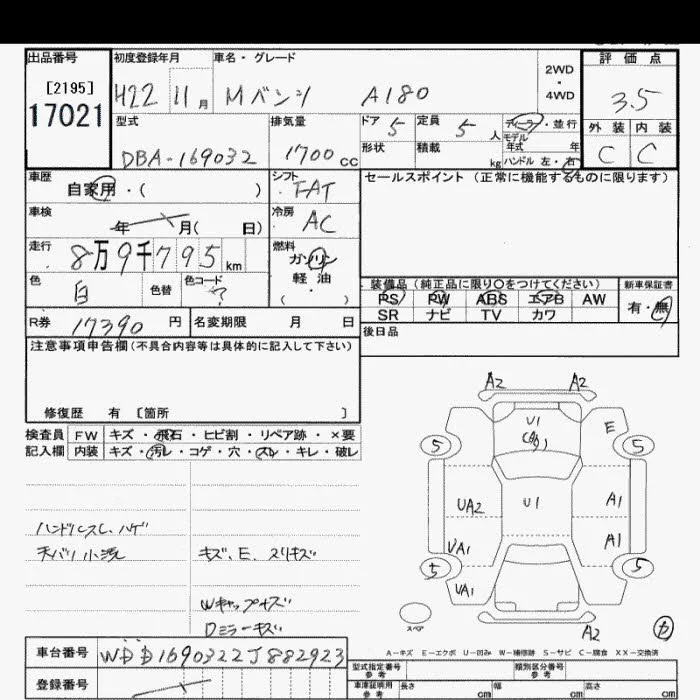 出品番号 初度登録年月 車名・グレード 評価点
[2195]
17021
H22 11月 Mベンツ A180
2WD・4WD
3.5
型式 排気量 ドア 定員 ディーラー・並行 外装 内装
DBA-169032 1700cc 5 5人 モデル年式 年 C C
形状 積載 kg ハンドル 左・右
車歴 自家用・( ) シフト FAT セールスポイント(正常に機能するものに限ります)
車検 年 月( 日) 冷房 AC
走行 8万9千795km 燃料 ガソリン
軽・油
・( )
色 白 色替 色コード ?
装備品(純正品に限り○をつけてください) 新車保証書
PS PW ABS エアB AW 有・無
SR ナビ TV カワ
R券 17390円 名変期限 月 日 後日品
注意事項申告欄(不具合内容等は具体的に記入して下さい)
修復歴 有 [箇所 ]
検査員 FW キズ・飛石・ヒビ割・リペア跡・×要
記入欄 内装 キズ・汚レ・コゲ・穴・スレ・キレ・破レ
ハンドルスレ、ハゲ
天バリ小汚 キズ、E、スリキズ
Wキャップキズ
Dミラーキズ
A2 A2
U1
E
5 5
UA2 U1 A1
UA1 A1
5 5
UA1
スペア
A2
A-キズ E-エクボ U-凹み W-補修跡 S-サビ C-腐食 XX-交換済
車台番号 WDD1690322J882923
登録番号
型式指定番号 参考 類別区分番号 参考
車庫証明用 参考 長さ cm 幅 cm 高さ cm